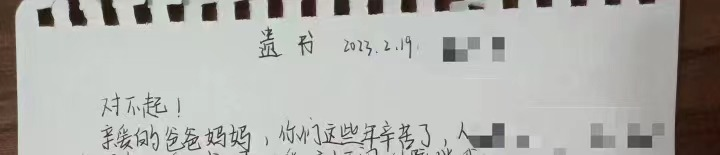 遗书 2023.2.19.
对不起！
亲爱的爸爸妈妈，你们这些年辛苦了，人